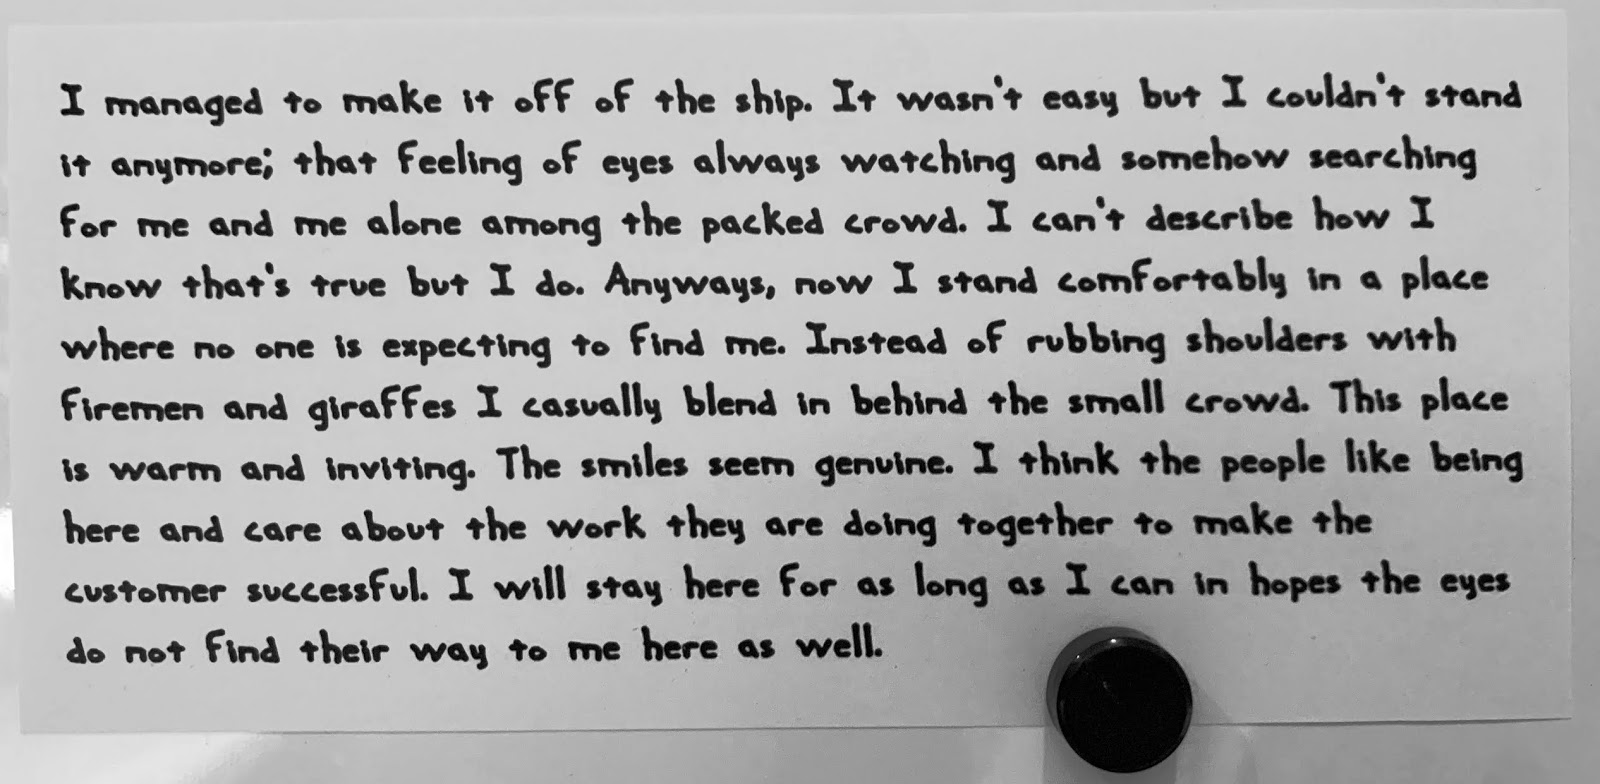 I managed to make it off of the ship. It wasn't easy but I couldn't stand
it anymore; that feeling of eyes always watching and somehow searching
for me and me alone among the packed crowd. I can't describe how I
know that's true but I do. Anyways, now I stand comfortably in a place
where no one is expecting to find me. Instead of rubbing shoulders with
firemen and giraffes I casually blend in behind the small crowd. This place
is warm and inviting. The smiles seem genuine. I think the people like being
here and care about the work they are doing together to make the
customer successful. I will stay here for as long as I can in hopes the eyes
do not find their way to me here as well.